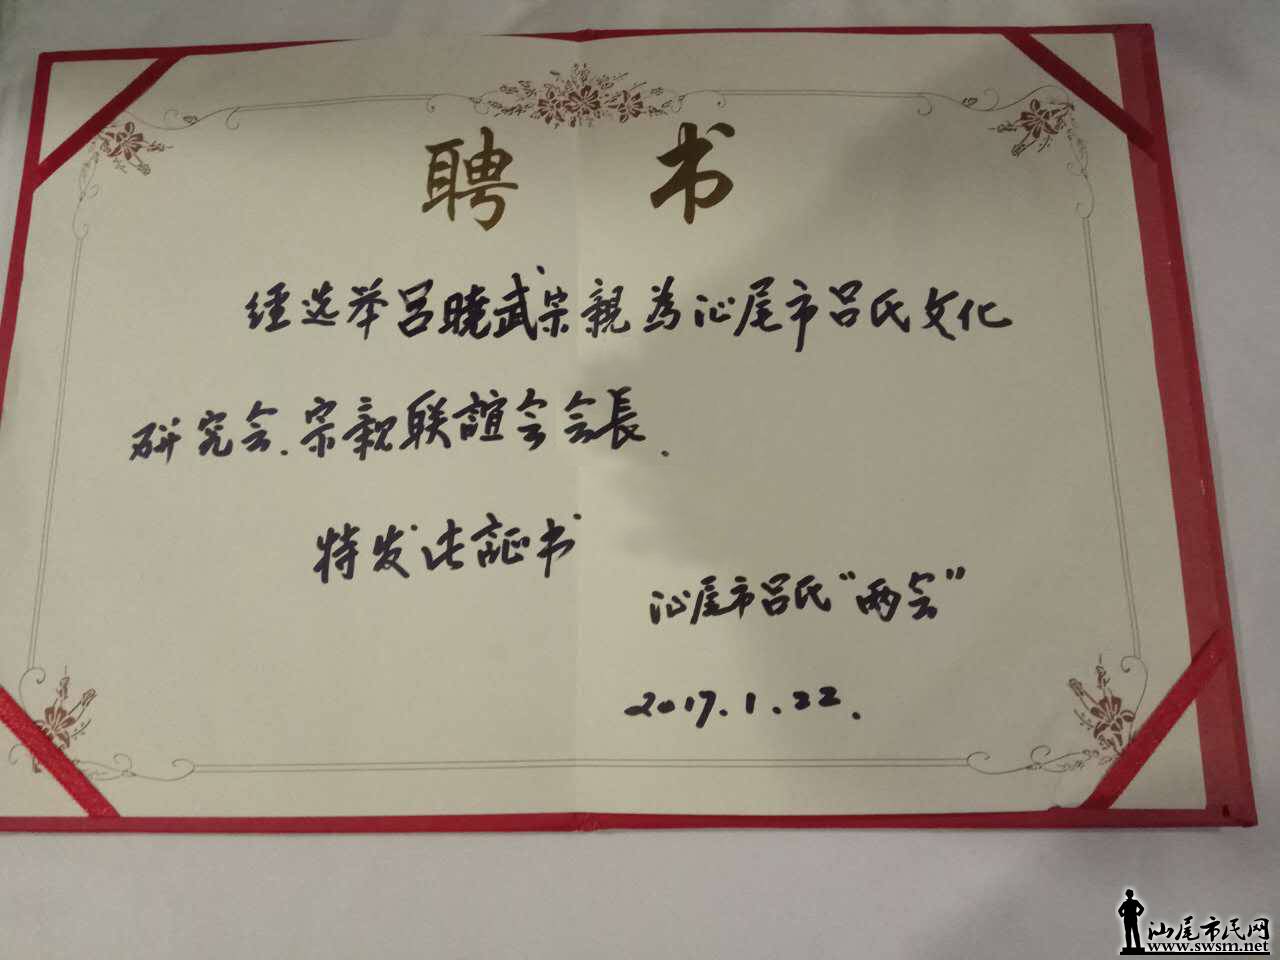 聘书
经选举吕晓武宗親为汕尾市吕氏文化
研究会.宗親联誼会会長.
特发此証书
汕尾市吕氏“两会”
2017.1.22.
汕尾市民网
www.swsm.net